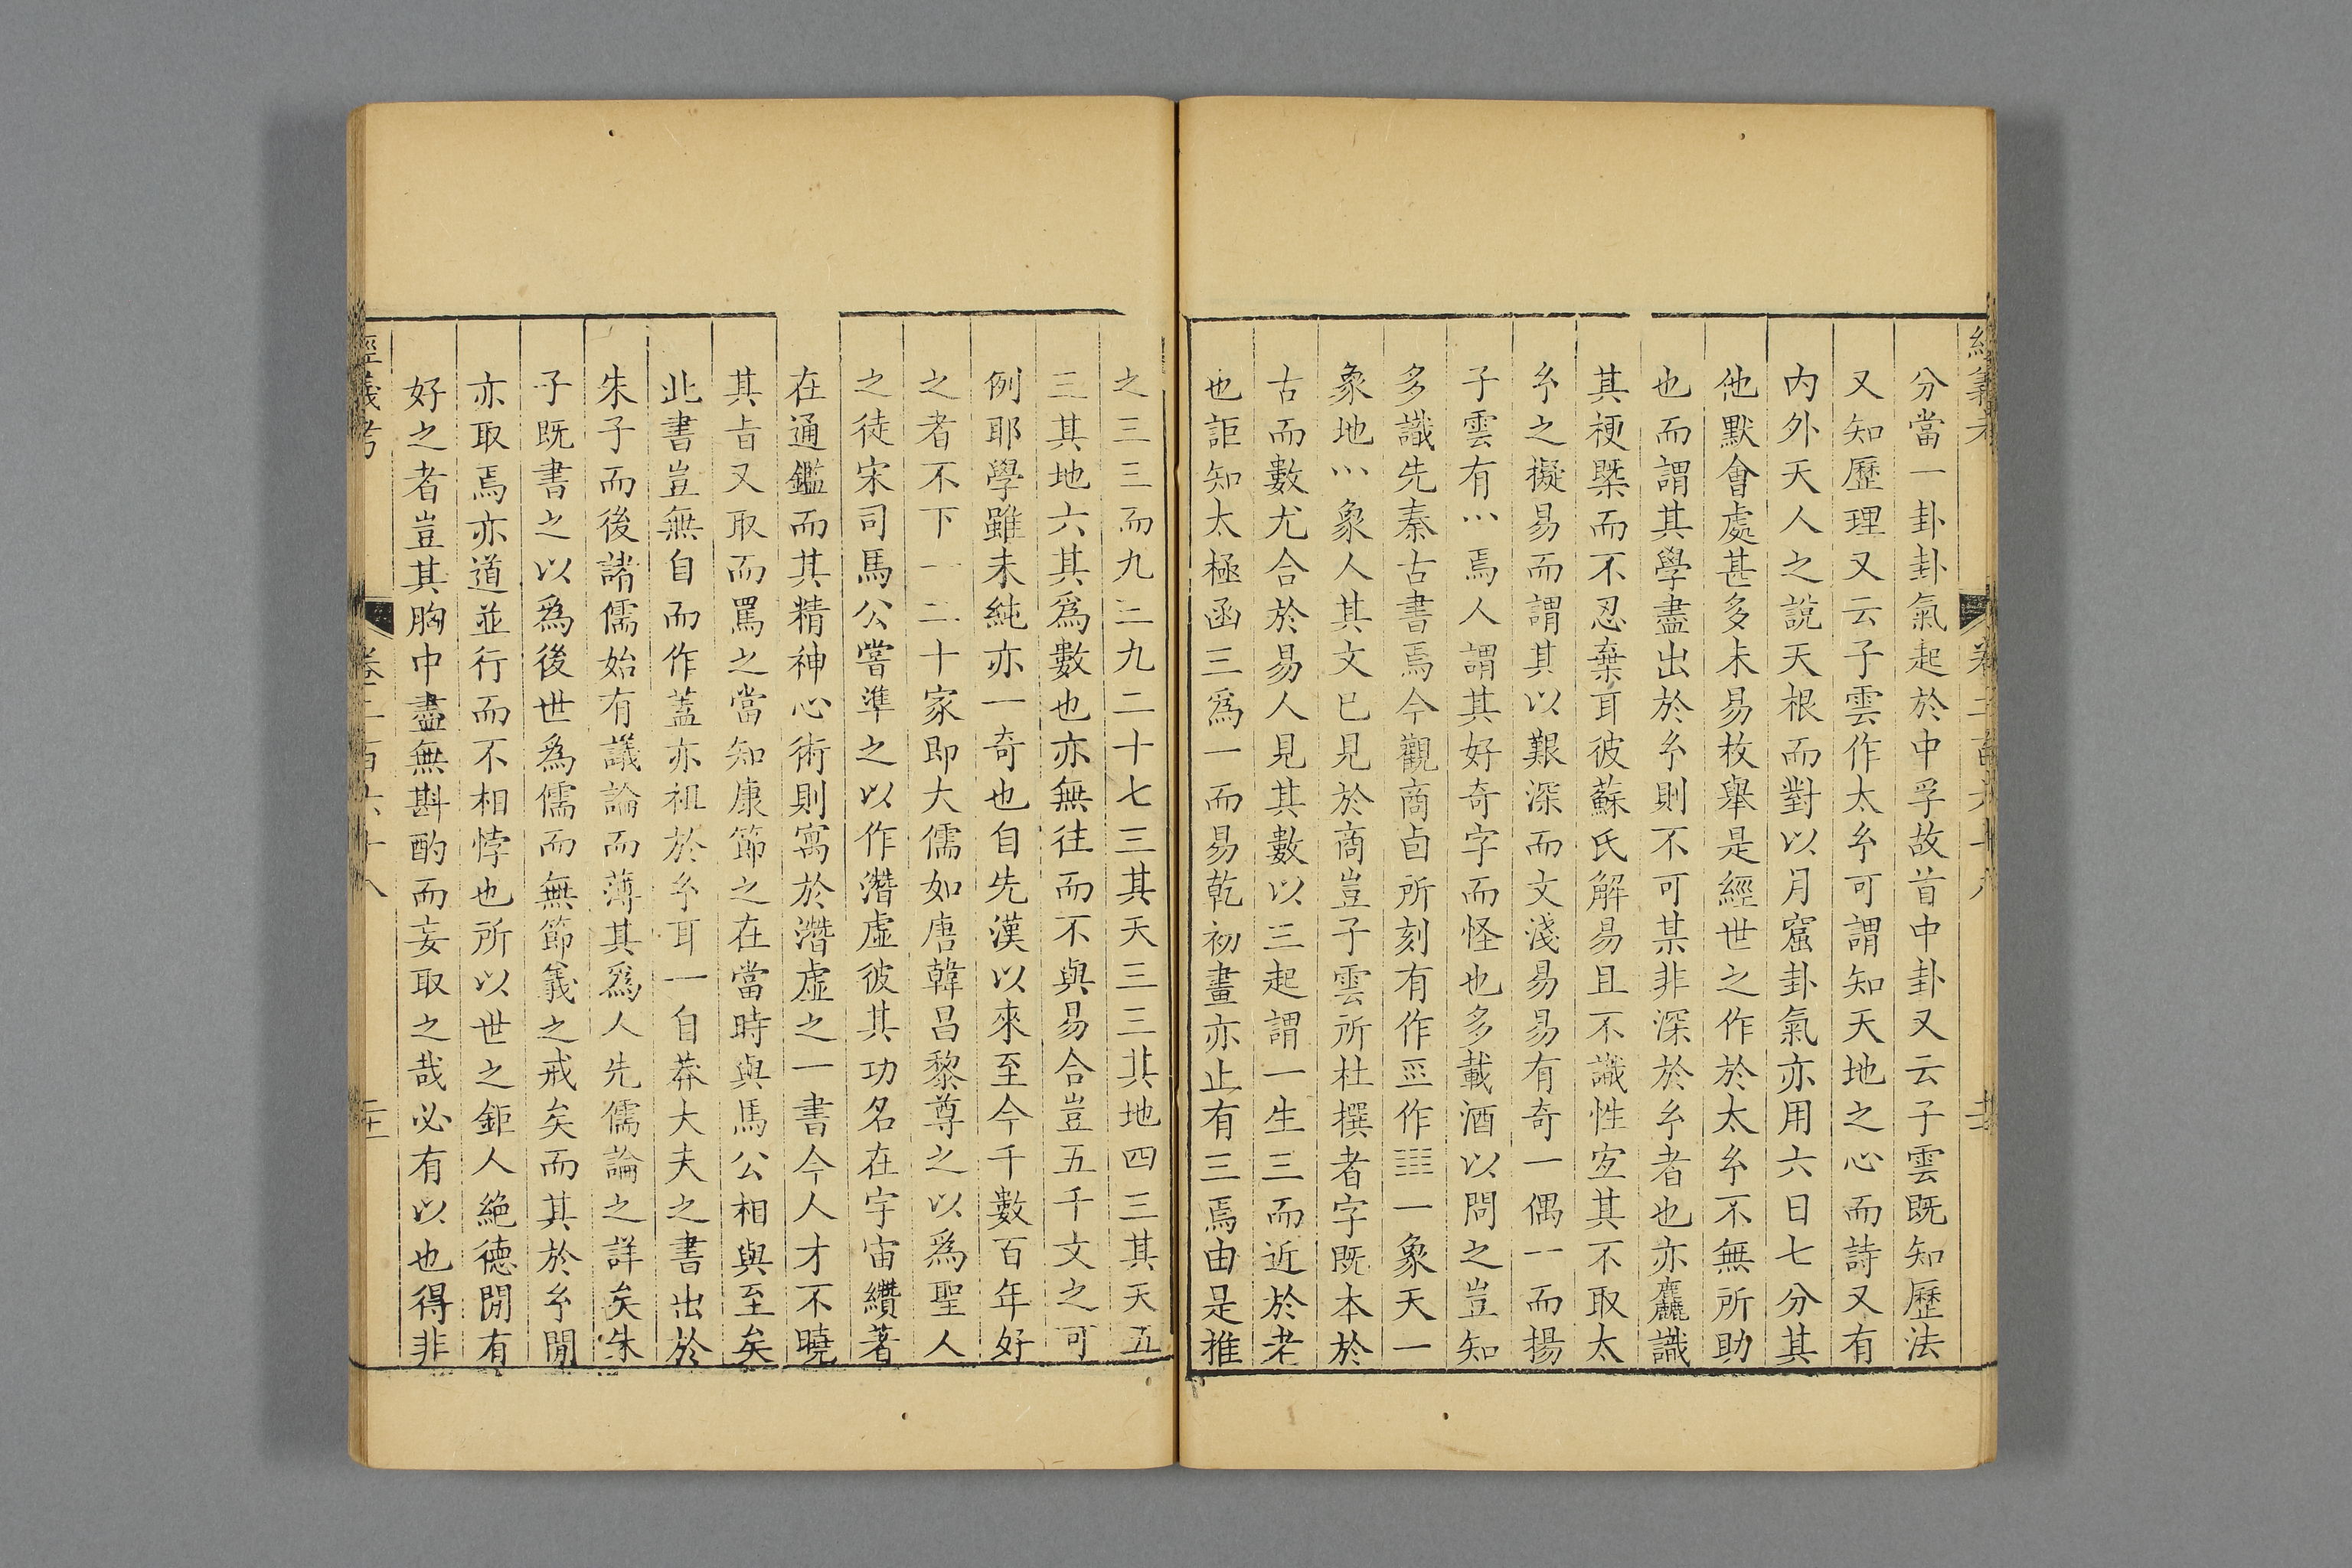 分當一卦卦氣起於中孚故首中卦又云子雲既知歷法
又知歷理又云子雲作太𤣥可謂知天地之心而詩又有
内外天人之說天根而對以月窟卦氣亦用六日七分其
他默會處甚多未易枚舉是經世之作於太𤣥不無所助
也而謂其學盡出於𤣥則不可某非深於𤣥者也亦麤識
其梗槩而不忍棄耳彼蘇氏解易且不識性宐其不取太
𤣥之擬易而謂其以艱深而文淺易易有奇一偶一一而揚
子雲有𠁼焉人謂其好奇字而怪也多載酒以問之豈知
多識先秦古書焉今觀商卣所刻有作亖作𝌆一象天一一
象地𠁼象人其文已見於商豈子雲所杜撰者字既本於
古而數尤合於易人見其數以三起謂一生三而近於老
也詎知太極函三爲一而易乾初畫亦止有三焉由是推
之三三而九三九二十七三其天三三其地四三其天五
三其地六其爲數也亦無往而不與易合豈五千文之可
例耶學雖未純亦一奇也自先漢以來至今千數百年好
之者不下一二十家即大儒如唐韓昌黎尊之以爲聖人
之徒宋司馬公嘗準之以作濳虛彼其功名在宇宙纘著
在通鑑而其精神心術則寓於濳虛之一書今人才不曉
其㫖又取而罵之當知康節之在當時與馬公相與至矣
此書豈無自而作蓋亦祖於𤣥耳一自莽大夫之書出於
朱子而後諸儒始有議論而薄其爲人先儒論之詳矣朱
子既書之以爲後世爲儒而無節義之戒矣而其於𤣥閒
亦取焉亦道並行而不相悖也所以世之鉅人絶德閒有
好之者豈其胸中盡無斟酌而妄取之哉必有以也得非
經義考 卷二百六十八